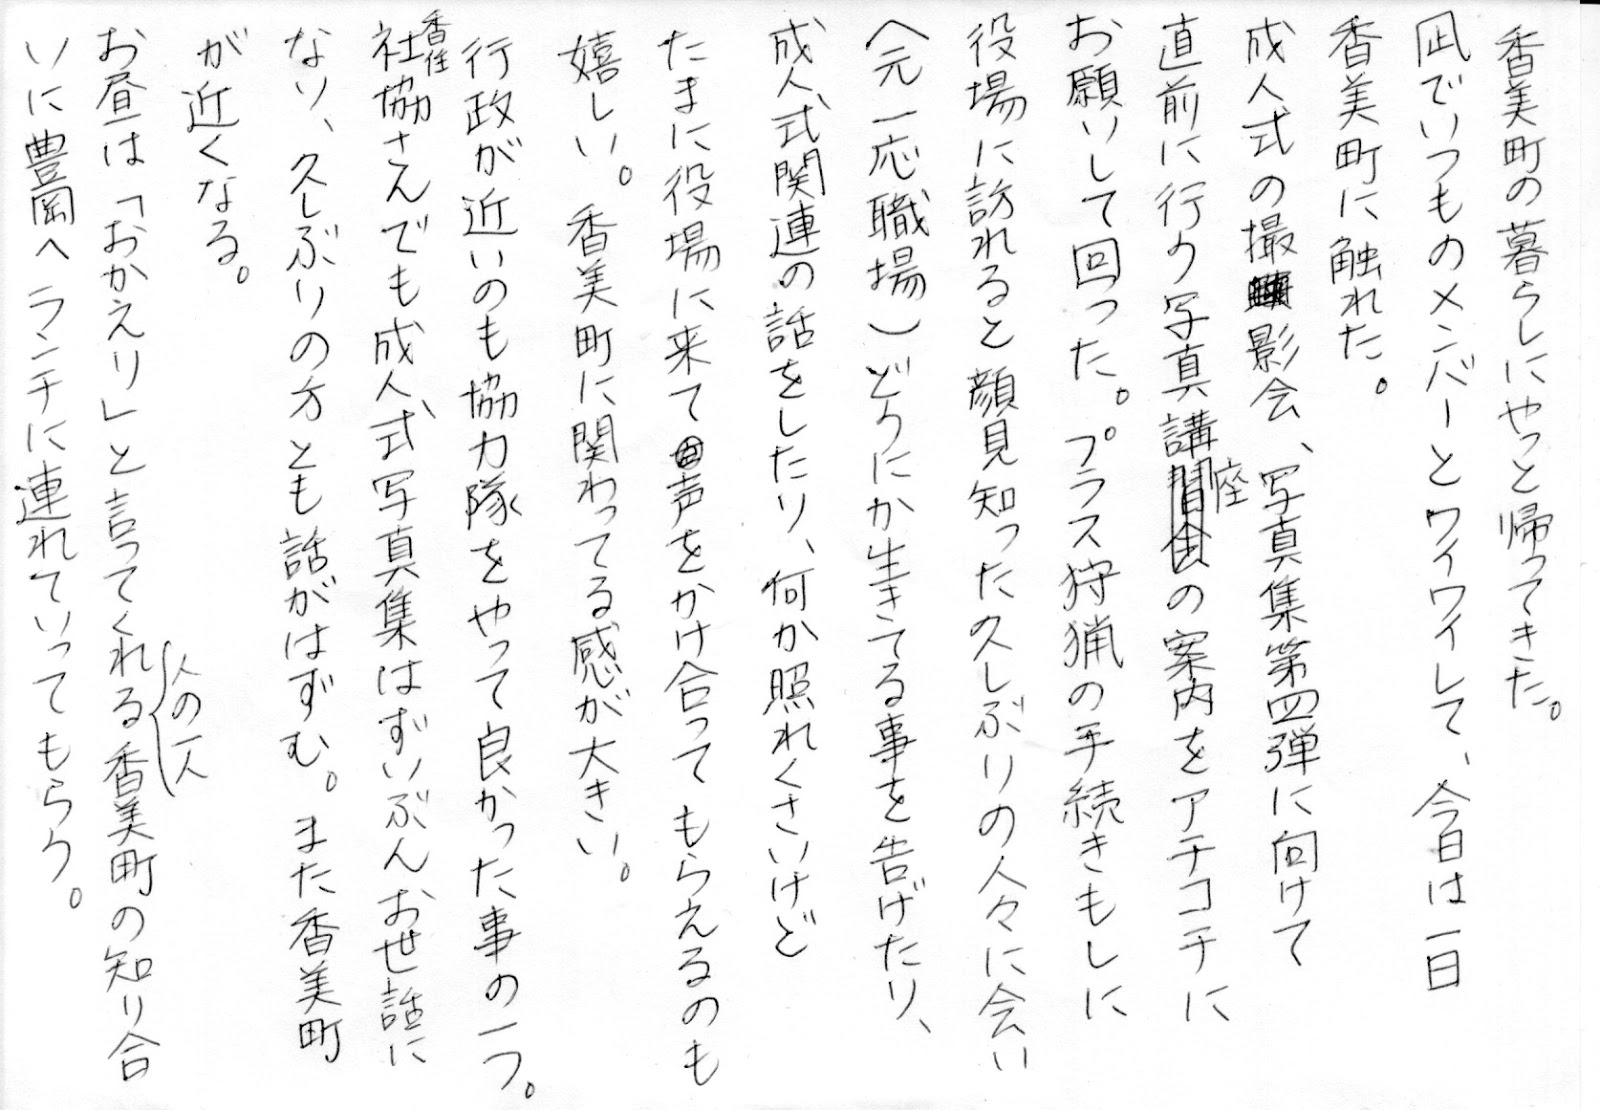 香美町の暮らしにやっと帰ってきた。
凪でいつものメンバーとワイワイして、今日は一日
香美町に触れた。
成人式の撮影会、写真集第四弾に向けて
直前に行う写真講座の案内をアチコチに
お願いして回った。プラス狩猟の手続きもしに
役場に訪れると顔見知った久しぶりの人々に会い
(元一応職場)どうにか生きてる事を告げたり、
成人式関連の話をしたり、何か照れくさいけど
たまに役場に来て声をかけ合ってもらえるのも
嬉しい。香美町に関わってる感が大きい。
行政が近いのも協力隊をやって良かった事の一つ。
香住
社協さんでも成人式写真集はずいぶんお世話に
なり、久しぶりの方とも話がはずむ。また香美町
が近くなる。
お昼は「おかえり」と言ってくれる香美町の知り合
人の一人
いに豊岡へランチに連れていってもらう。